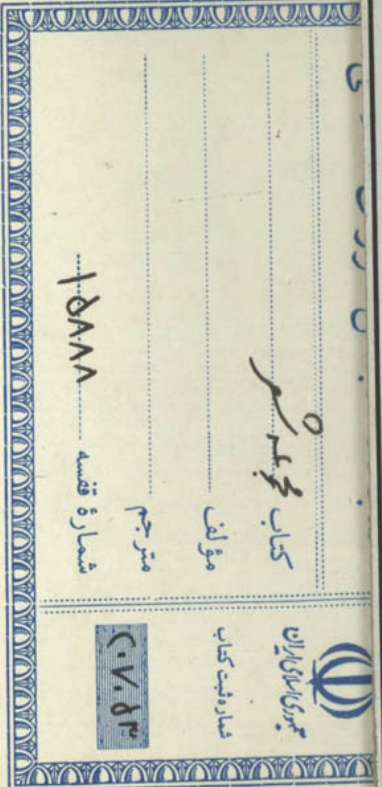 جمهوری اسلامی ایران
شماره ثبت کتاب
۲۰۷۰۵۳
کتاب مجموعه شعر
مؤلف
مترجم
شمارهٔ قفسه ۱۵۸۸۸